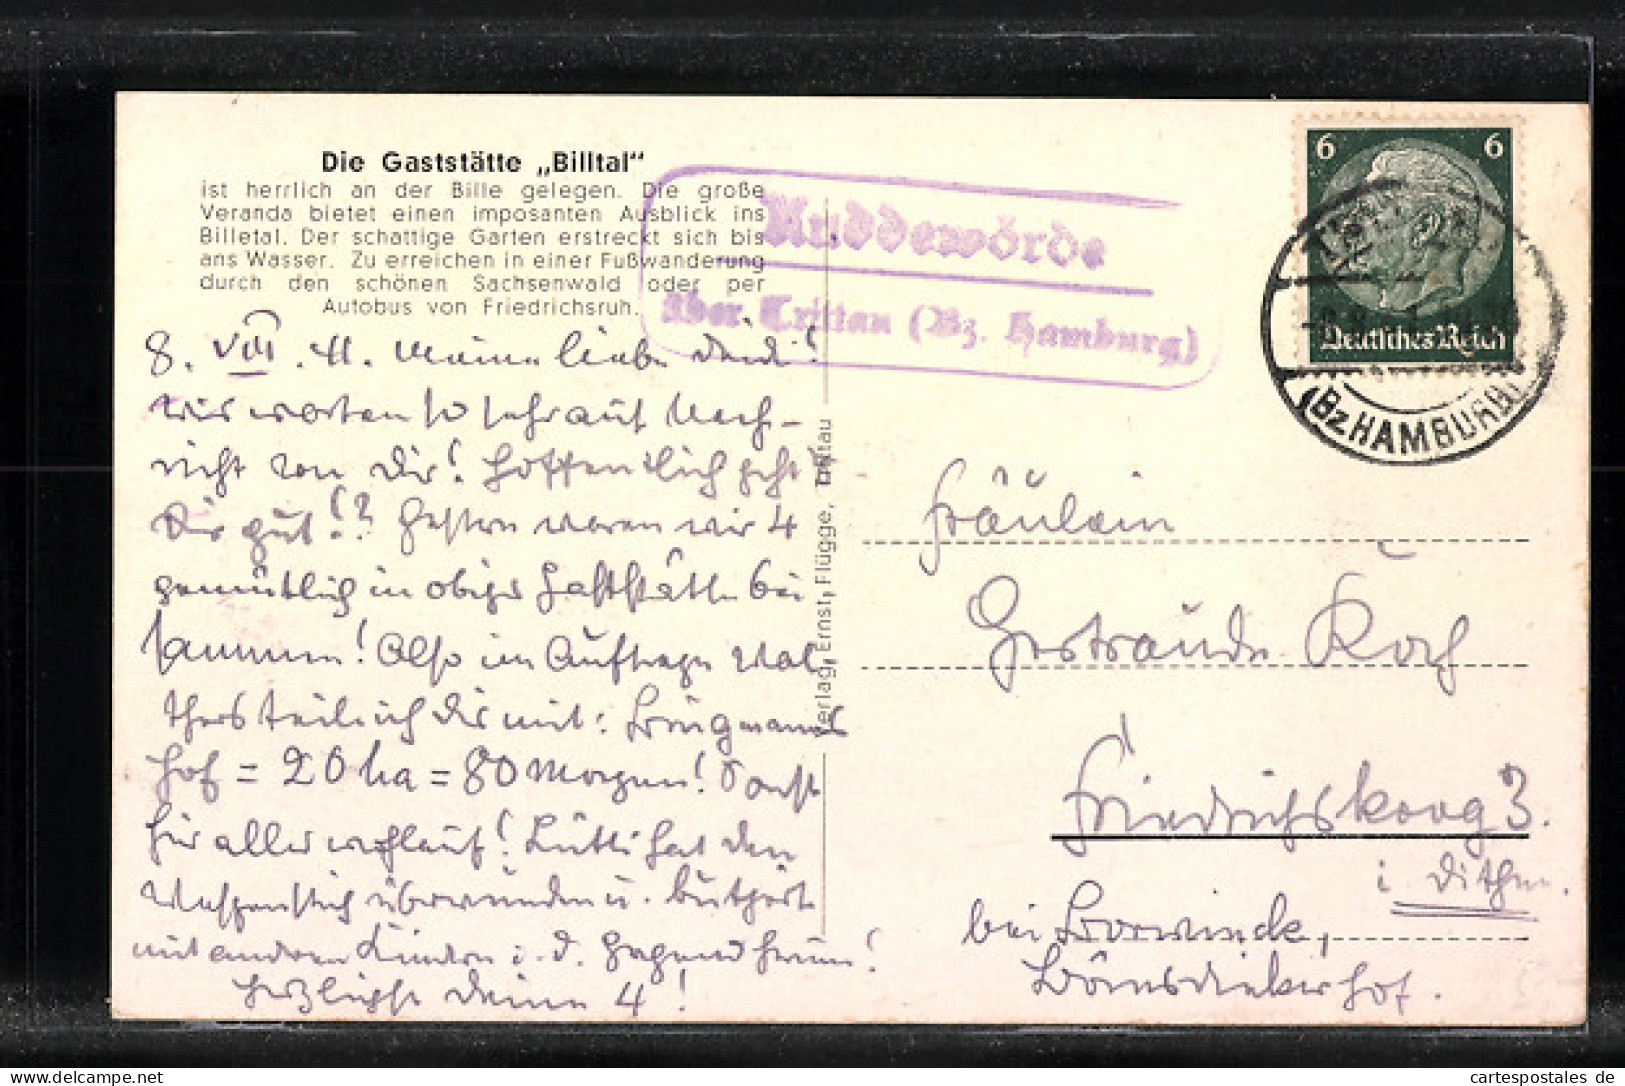 Die Gaststätte „Billtal"
ist herrlich an der Bille gelegen. Die große
Veranda bietet einen imposanten Ausblick ins
Billetal. Der schattige Garten erstreckt sich bis
ans Wasser. Zu erreichen in einer Fußwanderung
durch den schönen Sachsenwald oder per
Autobus von Friedrichsruh.
Kuddewörde
über Trittau (Bz. Hamburg)
6 6
Deutsches Reich
(Bz HAMBURG)
8. VIII. 41. Meine liebe
wir warten so sehr auf Nach-
richt von Dir! Hoffentlich geht
Dir gut!? Gestern waren wir 4
gemütlich in obiger Gaststätte bei
sammen! Also im Auftrage Wal
thers teile ich Dir mit:
Hof = 20 ha = 80 Morgen! Sonst
hier alles wohlauf! Lütti hat den
Wespenstich überwunden u.
mit anderen Kindern i. d. Gegend herum!
Herzlichst Deine 4!
Verlag, Ernst Flügge, Trittau
Fräulein
Gertraude Koch
Friedrichskoog 3.
i. Dithm.
bei
cartespostales de